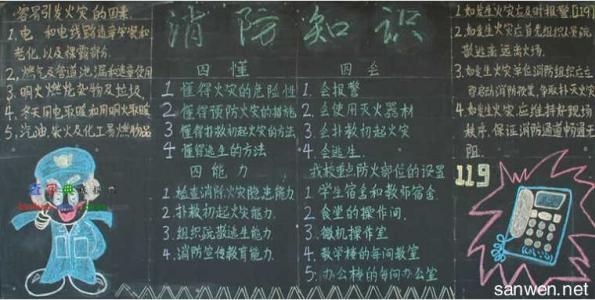 消防知识
容易引发火灾的因素.
1.电 和电线路违章安装和
老化.以及裸露部分.
2.燃气及管道泄漏和违章使用
3.明火燃烧杂物及垃圾.
4.冬天用电取暖和用明火取暖
5.汽油.柴火及化工易燃物品
四懂
1 懂得火灾的危险性
2 懂得预防火灾的措施
3 懂得扑救初起火灾的方法
4 懂得逃生的方法
四能力
1.检查消除火灾隐患能力
2.扑救初起火灾能力.
3.组织疏散逃生能力
4.消防宣传教育能力.
四会
1.会报警
2.会使用灭火器材
3.会扑救初起火灾
4.会逃生.
我校重点防火部位的设置
1.学生宿舍和教师宿舍.
2.食堂的操作间.
3.微机操作室
4.教学楼的每间教室
5.办公楼的每间办公室
1.如发生火灾应及时报警[119]
2.如发生火灾应首先组织人员
疏散逃离远出火场.
3.如发生火灾单位消防组织应立
4.如发生火灾.应维持好现场
秩序.保证消防通道畅通无
阻.
119
sanwen.net